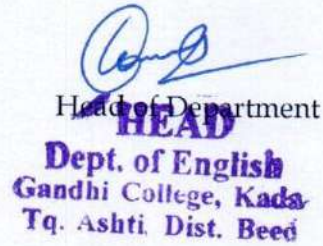 Head of Department
HEAD
Dept. of English
Gandhi College, Kada
Tq. Ashti, Dist. Beed